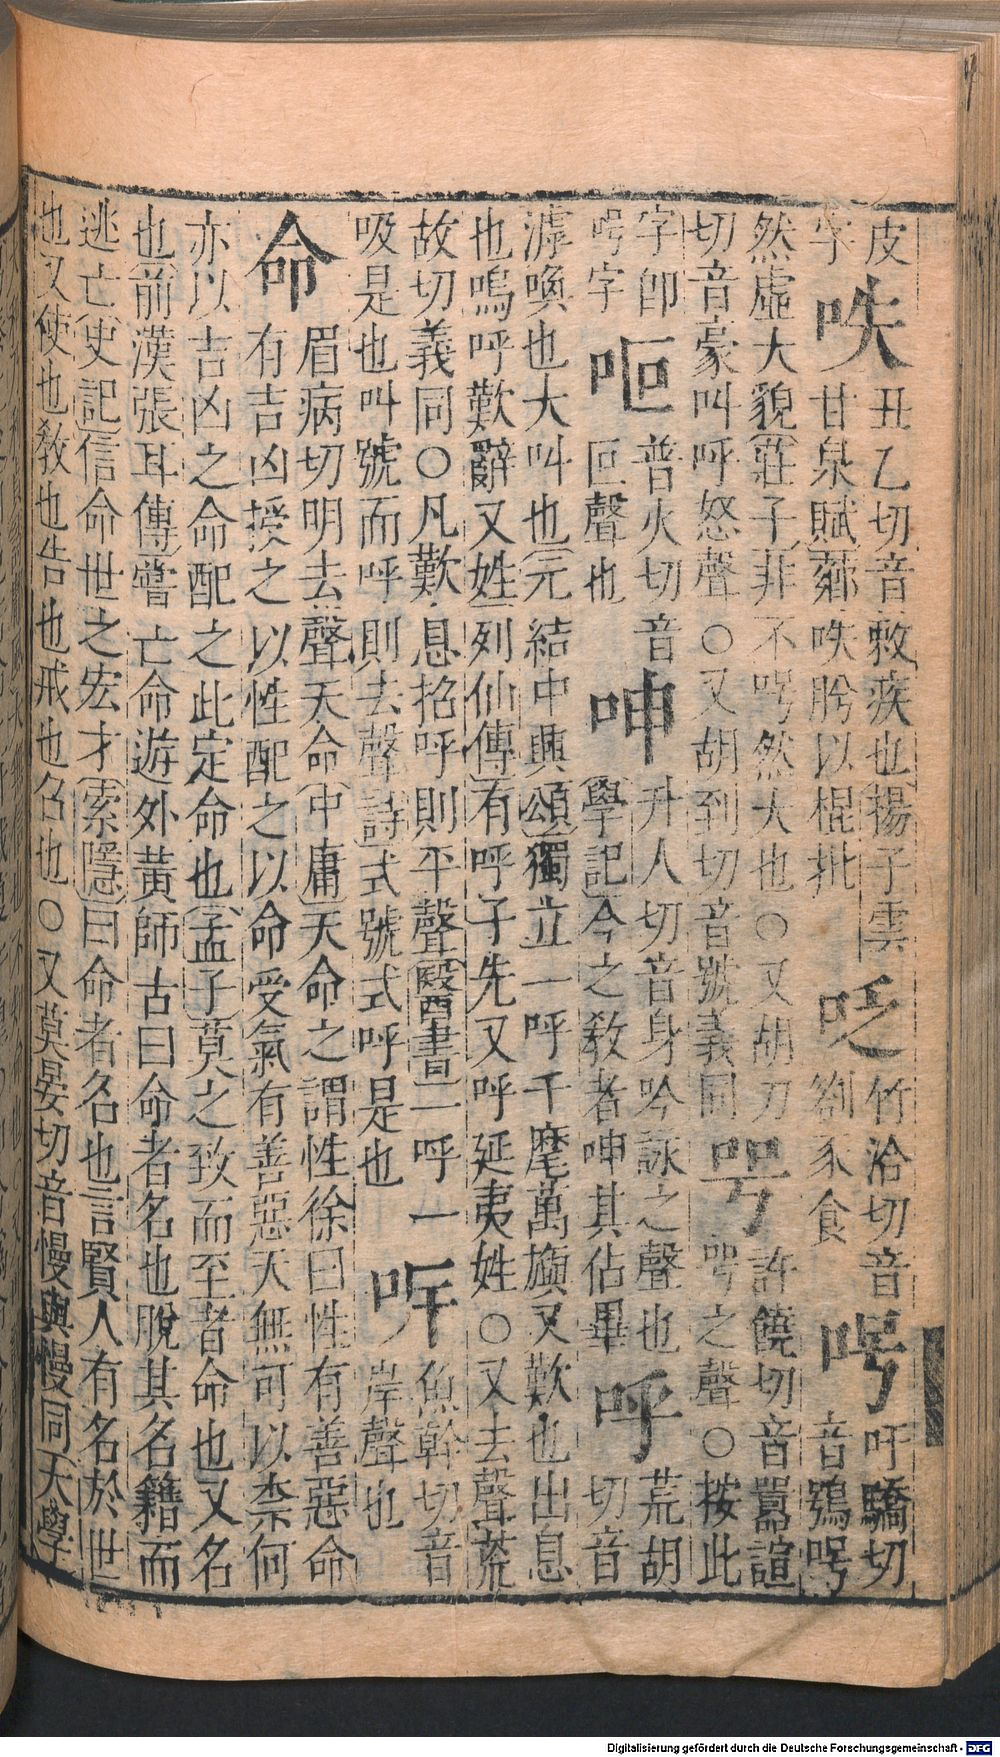 皮
字
呹
丑乙切音敕疾也揚子雲
甘泉賦薌呹肸以棍批
竹洽切音
劄豕食
呺
吁驕切
音鴞呺
然虛大貌莊子非不呺然大也○又胡刀
切音豪叫呼怒聲○又胡到切音號義同
许饒切音囂諠
呺之聲○按此
字即
呺字
普火切音
叵聲也
呻
升人切音身吟詠之聲也
學記今之敎者呻其佔畢
呼
荒胡
切音
滹喚也大叫也元結中興頌獨立一呼千麾萬旟又歎也出息
也嗚呼歎辭又姓列仙傳有呼子先又呼延夷姓○又去聲荒
故切義同○凡歎息招呼則平聲醫書一呼一
吸是也叫號而呼則去聲詩式號式呼是也
魚幹切音
岸聲也
命
眉病切明去聲天命中庸天命之謂性徐曰性有善惡命
有吉凶授之以性配之以命受氣有善惡天無可以柰何
亦以吉凶之命配之此定命也孟子莫之致而至者命也又名
也前漢張耳傳嘗亡命遊外黃師古曰命者名也脫其名籍而
逃亡史記信命世之宏才索隱曰命者名也言賢人有名於世
也又使也敎也告也戒也名也○又莫晏切音慢與慢同大學
Digitalisierung gefördert durch die Deutsche Forschungsgemeinschaft - DFG